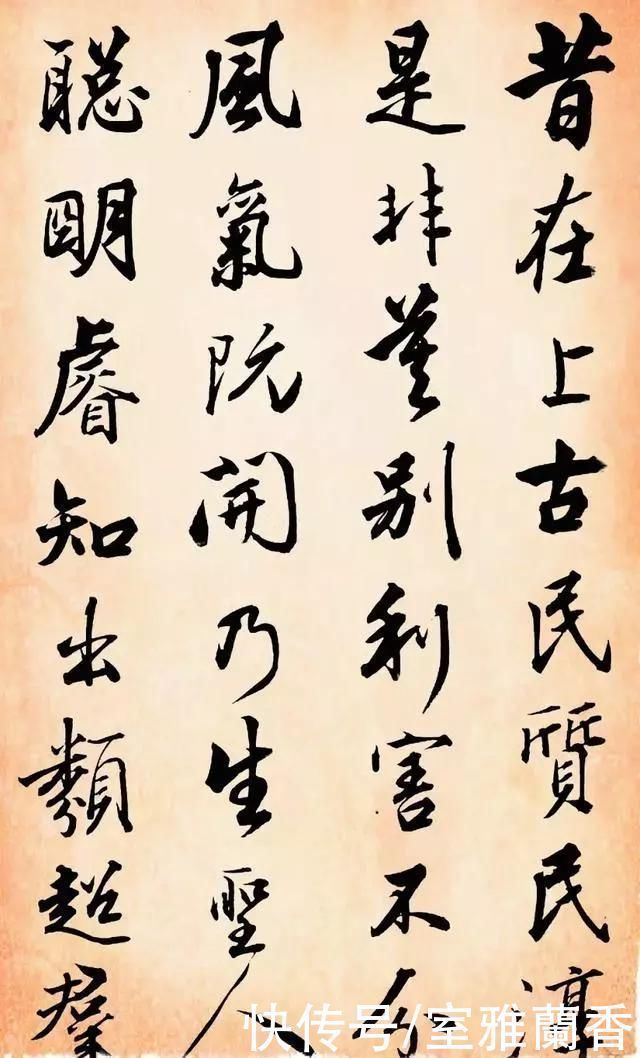 昔在上古民質民淳
是非莫別利害不分
風氣既開乃生聖人
聰明睿知出類超羣
快传号/室雅蘭香